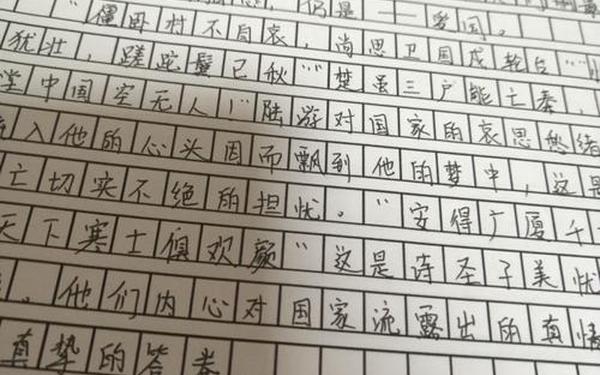 仍是——爱国。
“僵卧村不自哀，尚思卫国戍轮台”“
犹壮，蹉跎鬓已秋”“楚虽三户能亡秦，
堂中国空无人！”陆游对国家的哀思愁绪
入他的心头因而飘到他的梦中，这是
亡切实不绝的担忧。“安得广厦千
天下寒士俱欢颜”这是诗圣子美忧
。他们内心对国家流露出的真情
真挚的答卷